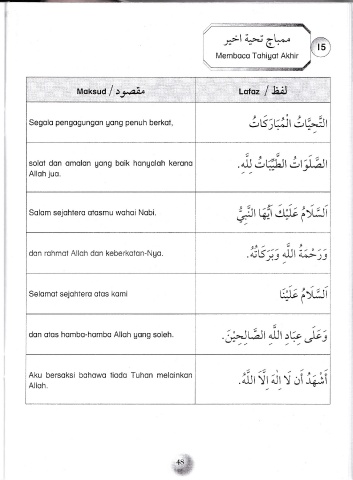 ممباچ تحية اخير
Membaca Tahiyat Akhir
15
Maksud / مقصود
Lafaz / لفظ
Segala pengagungan yang penuh berkat,
التَّحِيَّاتُ الْمُبَارَكَاتُ
solat dan amalan yang baik hanyalah kerana
Allah jua.
الصَّلَوَاتُ الطَّيِّبَاتُ لِلَّهِ.
Salam sejahtera atasmu wahai Nabi,
اَلسَّلَامُ عَلَيْكَ أَيُّهَا النَّبِيُّ
dan rahmat Allah dan keberkatan-Nya.
وَرَحْمَةُ اللَّهِ وَبَرَكَاتُهُ.
Selamat sejahtera atas kami
اَلسَّلَامُ عَلَيْنَا
dan atas hamba-hamba Allah yang soleh.
وَعَلَى عِبَادِ اللَّهِ الصَّالِحِيْنَ.
Aku bersaksi bahawa tiada Tuhan melainkan
Allah.
أَشْهَدُ أَن لَا إِلٰهَ إِلَّا اللَّهُ.
48